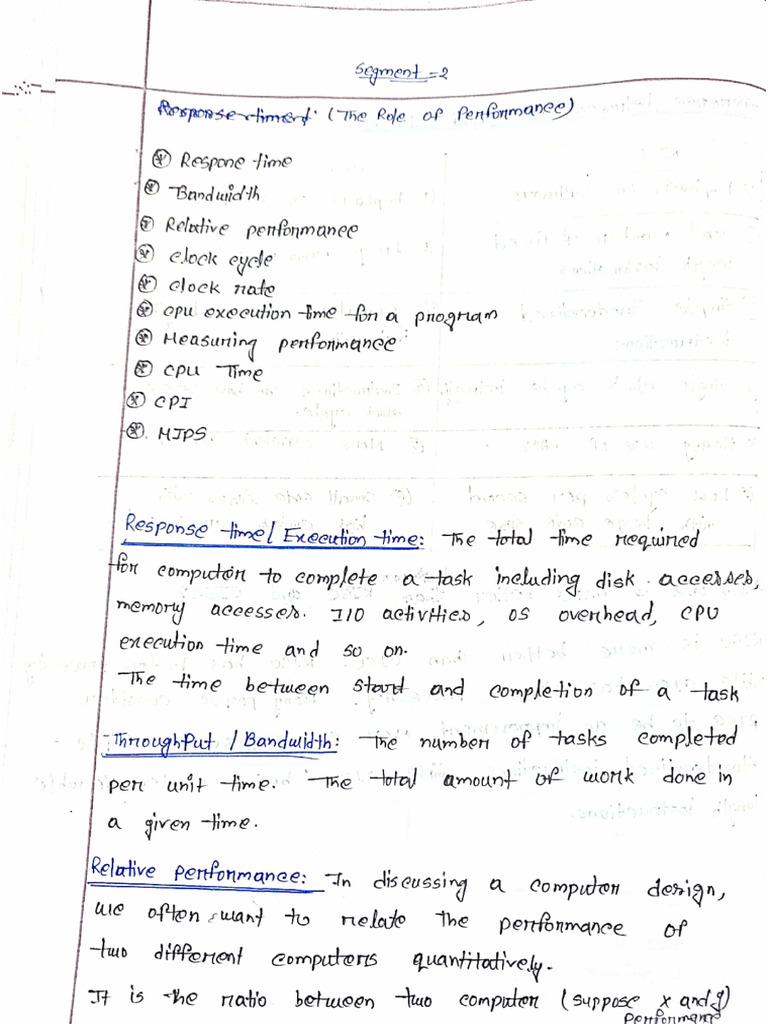 Segment = 2
Response timent (The Role of Performance)
⊛ Respone time
⊛ Bandwidth
⊛ Relative performance
⊛ clock cycle
⊛ clock rate
⊛ cpu execution time for a program
⊛ Measuring performance
⊛ CPU Time
⊛ CPI
⊛. MIPS.
Response time/ Execution time: The total time required
for computer to complete a task including disk accesses,
memory accesses. I/O activities, OS overhead, CPU
execution time and so on.
The time between start and completion of a task
Throughput / Bandwidth: The number of tasks completed
per unit time. The total amount of work done in
a given time.
Relative performance: In discussing a computer design,
we often want to relate the performance of
two different computers quantitatively.
It is the ratio between two computer (suppose x and y)
performanc